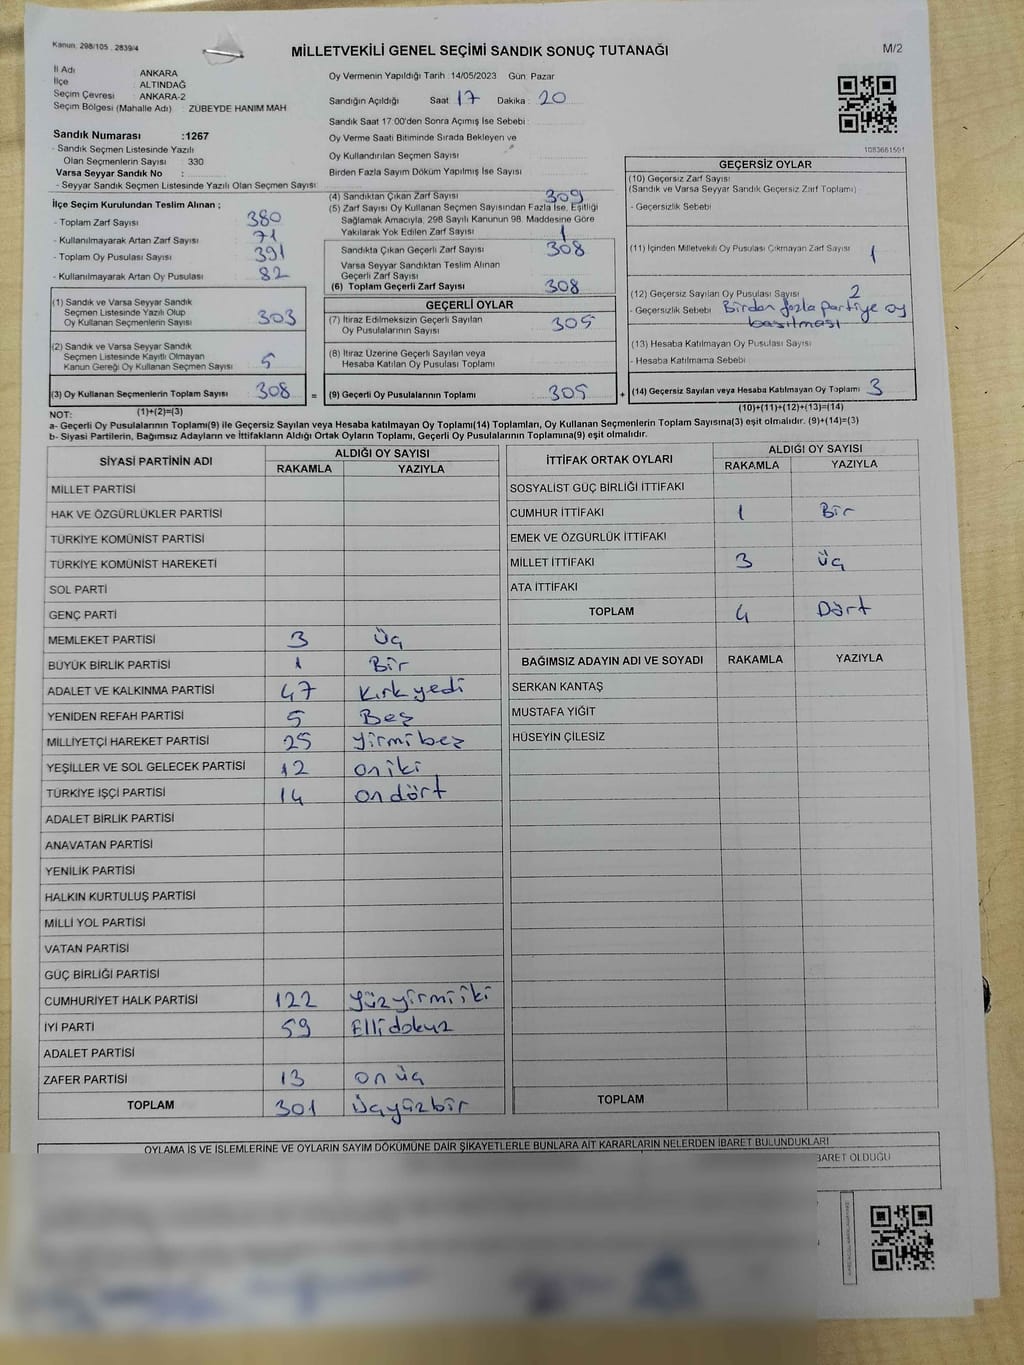 Kanun. 298/105 . 2839/4
MİLLETVEKİLİ GENEL SEÇİMİ SANDIK SONUÇ TUTANAĞI
M/2
İl Adı : ANKARA
İlçe : ALTINDAĞ
Seçim Çevresi : ANKARA-2
Seçim Bölgesi (Mahalle Adı) : ZÜBEYDE HANIM MAH
Sandık Numarası :1267
- Sandık Seçmen Listesinde Yazılı
Olan Seçmenlerin Sayısı : 330
Varsa Seyyar Sandık No :
- Seyyar Sandık Seçmen Listesinde Yazılı Olan Seçmen Sayısı:
Oy Vermenin Yapıldığı Tarih :14/05/2023 Gün: Pazar
Sandığın Açıldığı Saat : 17 Dakika : 20
Sandık Saat 17:00'den Sonra Açmış İse Sebebi :
Oy Verme Saati Bitiminde Sırada Bekleyen ve
Oy Kullandırılan Seçmen Sayısı
Birden Fazla Sayım Döküm Yapılmış İse Sayısı
1083661591
İlçe Seçim Kurulundan Teslim Alınan ;
- Toplam Zarf Sayısı 380
- Kullanılmayarak Artan Zarf Sayısı 71
- Toplam Oy Pusulası Sayısı 391
- Kullanılmayarak Artan Oy Pusulası 82
(1) Sandık ve Varsa Seyyar Sandık
Seçmen Listesinde Yazılı Olup
Oy Kullanan Seçmenlerin Sayısı 303
(2) Sandık ve Varsa Seyyar Sandık
Seçmen Listesinde Kayıtlı Olmayan
Kanun Gereği Oy Kullanan Seçmen Sayısı 5
(3) Oy Kullanan Seçmenlerin Toplam Sayısı 308
(1)+(2)=(3)
(4) Sandıktan Çıkan Zarf Sayısı 309
(5) Zarf Sayısı Oy Kullanan Seçmen Sayısından Fazla İse, Eşitliği
Sağlamak Amacıyla, 298 Sayılı Kanunun 98. Maddesine Göre
Yakılarak Yok Edilen Zarf Sayısı 1
Sandıkta Çıkan Geçerli Zarf Sayısı 308
Varsa Seyyar Sandıktan Teslim Alınan
Geçerli Zarf Sayısı
(6) Toplam Geçerli Zarf Sayısı 308
GEÇERLİ OYLAR
(7) İtiraz Edilmeksizin Geçerli Sayılan
Oy Pusulalarının Sayısı 305
(8) İtiraz Üzerine Geçerli Sayılan veya
Hesaba Katılan Oy Pusulası Toplamı
= (9) Geçerli Oy Pusulalarının Toplamı 305
GEÇERSİZ OYLAR
(10) Geçersiz Zarf Sayısı
(Sandık ve Varsa Seyyar Sandık Geçersiz Zarf Toplamı)
- Geçersizlik Sebebi
(11) İçinden Milletvekili Oy Pusulası Çıkmayan Zarf Sayısı 1
(12) Geçersiz Sayılan Oy Pusulası Sayısı 2
- Geçersizlik Sebebi Birden fazla partiye oy
basılması
(13) Hesaba Katılmayan Oy Pusulası Sayısı
- Hesaba Katılmama Sebebi
+ (14) Geçersiz Sayılan veya Hesaba Katılmayan Oy Toplamı 3
(10)+(11)+(12)+(13)=(14)
NOT:
a- Geçerli Oy Pusulalarının Toplamı(9) ile Geçersiz Sayılan veya Hesaba katılmayan Oy Toplamı(14) Toplamları, Oy Kullanan Seçmenlerin Toplam Sayısına(3) eşit olmalıdır. (9)+(14)=(3)
b- Siyasi Partilerin, Bağımsız Adayların ve İttifakların Aldığı Ortak Oyların Toplamı, Geçerli Oy Pusulalarının Toplamına(9) eşit olmalıdır.
SİYASİ PARTİNİN ADI
ALDIĞI OY SAYISI
RAKAMLA YAZIYLA
MİLLET PARTİSİ
HAK VE ÖZGÜRLÜKLER PARTİSİ
TÜRKİYE KOMÜNİST PARTİSİ
TÜRKİYE KOMÜNİST HAREKETİ
SOL PARTİ
GENÇ PARTİ
MEMLEKET PARTİSİ 3 Üç
BÜYÜK BİRLİK PARTİSİ 1 Bir
ADALET VE KALKINMA PARTİSİ 47 Kırkyedi
YENİDEN REFAH PARTİSİ 5 Beş
MİLLİYETÇİ HAREKET PARTİSİ 25 Yirmibeş
YEŞİLLER VE SOL GELECEK PARTİSİ 12 oniki
TÜRKİYE İŞÇİ PARTİSİ 14 ondört
ADALET BİRLİK PARTİSİ
ANAVATAN PARTİSİ
YENİLİK PARTİSİ
HALKIN KURTULUŞ PARTİSİ
MİLLİ YOL PARTİSİ
VATAN PARTİSİ
GÜÇ BİRLİĞİ PARTİSİ
CUMHURİYET HALK PARTİSİ 122 Yüzyirmiiki
İYİ PARTİ 59 Ellidokuz
ADALET PARTİSİ
ZAFER PARTİSİ 13 onüç
TOPLAM 301 Üçyüzbir
İTTİFAK ORTAK OYLARI
ALDIĞI OY SAYISI
RAKAMLA YAZIYLA
SOSYALİST GÜÇ BİRLİĞİ İTTİFAKI
CUMHUR İTTİFAKI 1 Bir
EMEK VE ÖZGÜRLÜK İTTİFAKI
MİLLET İTTİFAKI 3 Üç
ATA İTTİFAKI
TOPLAM 4 Dört
BAĞIMSIZ ADAYIN ADI VE SOYADI RAKAMLA YAZIYLA
SERKAN KANTAŞ
MUSTAFA YİĞİT
HÜSEYİN ÇİLESİZ
TOPLAM
OYLAMA İŞ VE İŞLEMLERİNE VE OYLARIN SAYIM DÖKÜMÜNE DAİR ŞİKAYETLERLE BUNLARA AİT KARARLARIN NELERDEN İBARET BULUNDUKLARI
BARET OLDUĞU